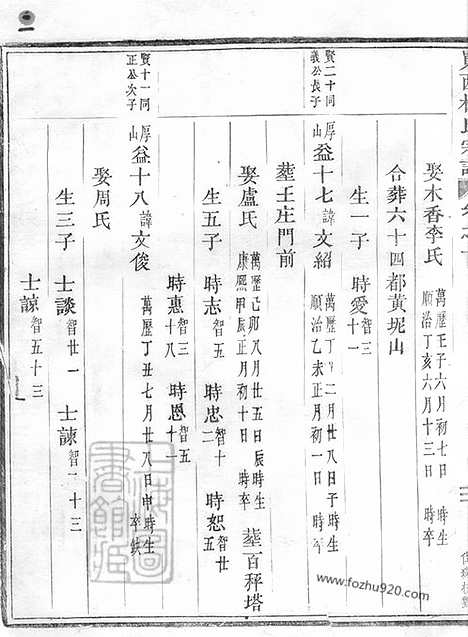 娶木香李氏 萬歷壬子六月初七日 時生 順治丁亥六月十三日 時卒
合葬六十四都黃坭山
生一子 時愛智三十一
賢二十同義公長子
厚山 益十七諱文紹 萬歷丁 二月廿八日子時生 順治乙未正月初一日 時卒
葬王庄門前
娶盧氏 萬歷己卯八月廿五日辰時生 康熙甲辰正月初十日 時卒 葬百秤塔
生五子 時志智五 時忠智十二 時恕智廿五
時惠智三十八 時恩智五十一
賢十一同正公次子
厚山 益十八諱文俊 萬歷丁丑七月廿八日申時生 卒缺
娶周氏
生三子 士談智廿一 士諫智一十三
士諒智五十三
上海圖書館藏
www.fozhu920.com